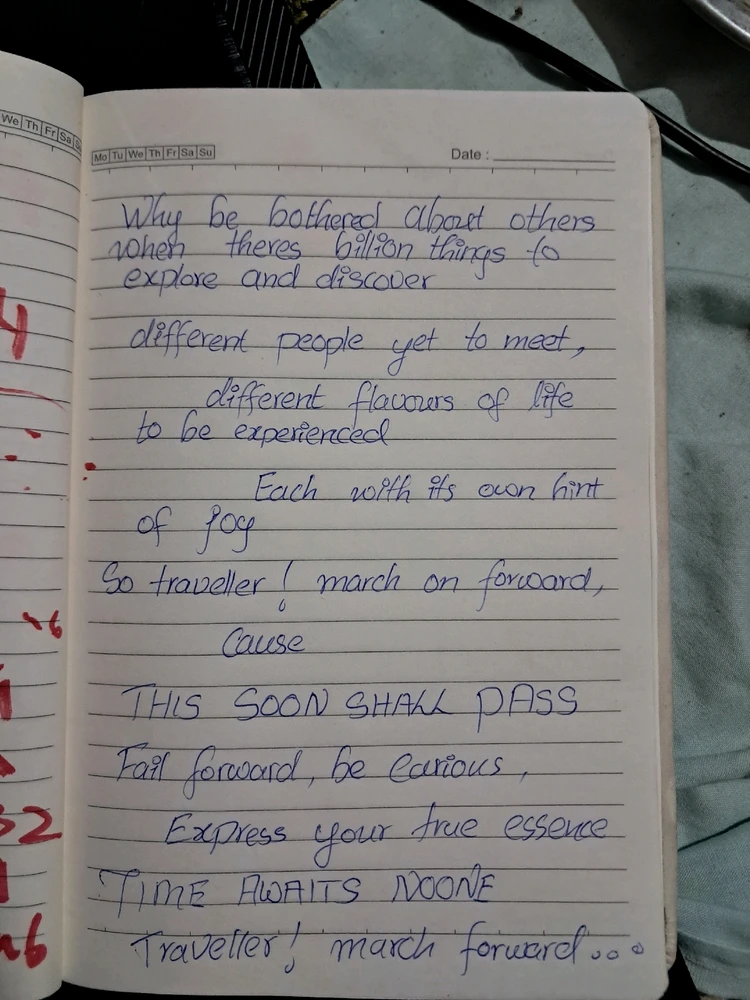 We Th Fr Sa Su
Mo Tu We Th Fr Sa Su
Date :
Why be bothered about others
when theres billion things to
explore and discover
different people yet to meet,
different flavours of life
to be experienced
Each with its own hint
of joy
So traveller! march on forward,
Cause
THIS SOON SHALL PASS
Fail forward, be curious,
Express your true essence
TIME AWAITS NOONE
Traveller! march forward...
4
6
32